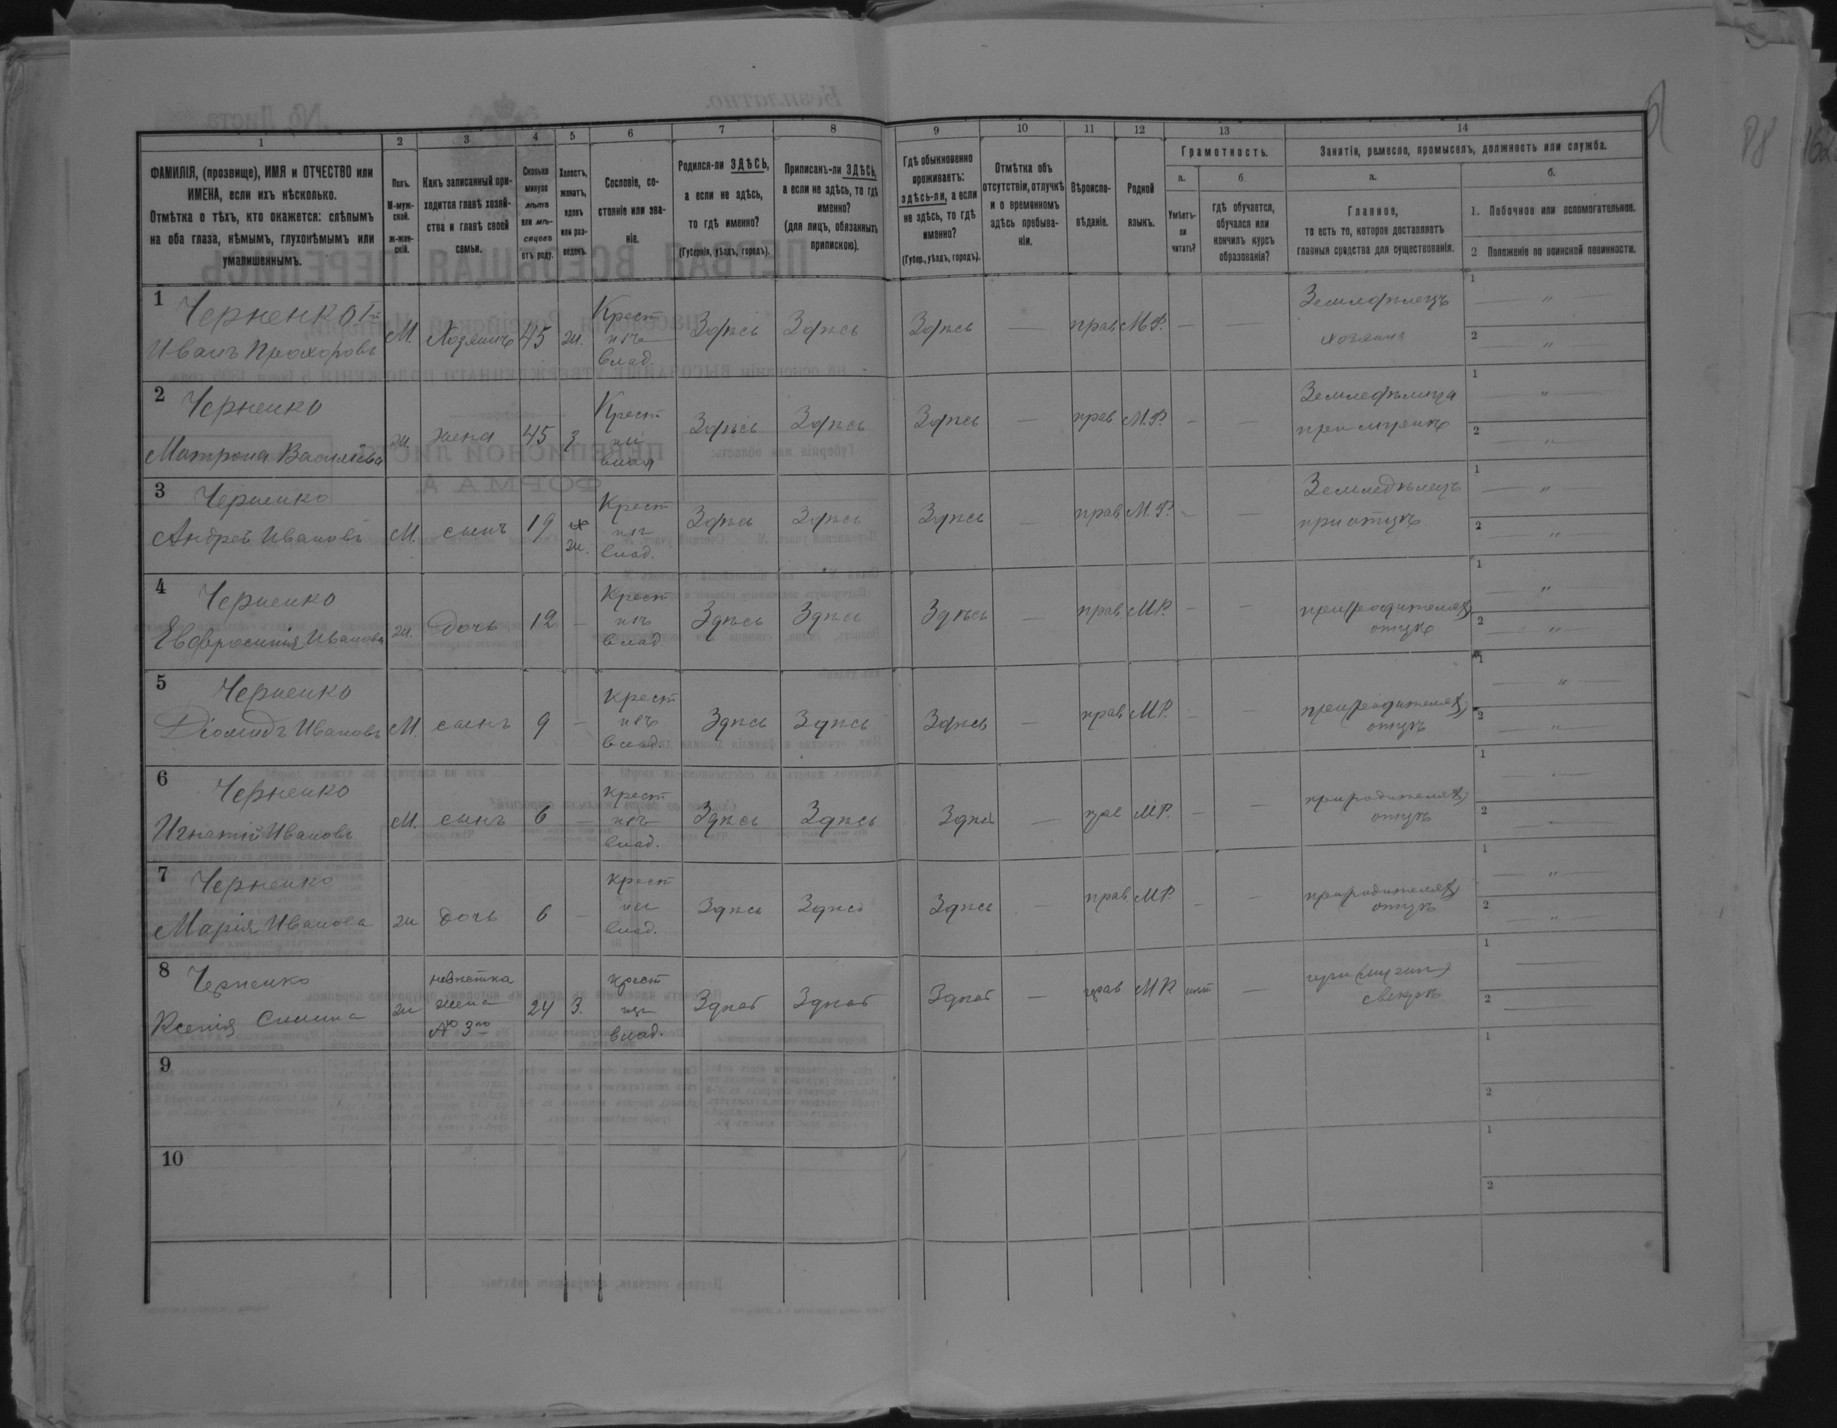 1 2 3 4 5 6 7 8 9 10 11 12 13 14
ФАМИЛІЯ, (прозвище), ИМЯ и ОТЧЕСТВО или
ИМЕНА, если ихъ нѣсколько.
Отмѣтка о тѣхъ, кто окажется: слѣпымъ
на оба глаза, нѣмымъ, глухонѣмымъ или
умалишеннымъ.
Полъ.
М-муж-
ской.
ж-жен-
скій.
Какъ записанный при-
ходится главѣ хозяй-
ства и главѣ своей
семьи.
Сколько
минуло
лѣтъ
или мѣ-
сяцевъ
отъ роду.
Холостъ,
женатъ,
вдовъ
или раз-
веденъ.
Сословіе, со-
стояніе или зва-
ніе.
Родился-ли ЗДѢСЬ,
а если не здѣсь,
то гдѣ именно?
(Губернія, уѣздъ, городъ).
Приписанъ-ли ЗДѢСЬ,
а если не здѣсь, то гдѣ
именно?
(для лицъ, обязанныхъ
припискою).
Гдѣ обыкновенно
проживаетъ:
здѣсь-ли, а если
не здѣсь, то гдѣ
именно?
(Губер., уѣздъ, городъ).
Отмѣтка объ
отсутствіи, отлучкѣ
и о временномъ
здѣсь пребыва-
ніи.
Вѣроиспо-
вѣданіе.
Родной
языкъ.
Грамотность.
а.
Умѣетъ-
ли
читать?
б.
гдѣ обучается,
обучался или
кончилъ курсъ
образованія?
Занятія, ремесло, промыселъ, должность или служба.
а.
Главное,
то есть то, которое доставляетъ
главныя средства для существованія.
б.
1. Побочное или вспомогательное.
2 Положеніе по воинской повинности.
1
Черненко
Иванъ Прохоровъ
М. Хозяинъ 45 ж.
Крест
изъ
влад.
Здѣсь Здѣсь Здѣсь — прав М.Р. — —
Земледѣлецъ
хозяинъ
1 — " —
2 — " —
2 Черненко
Матрона Василіева
ж. жена 45 з
Крест
изъ
влад
Здѣсь Здѣсь Здѣсь — прав М.Р. — —
при мужѣ
1 — " —
2 — " —
3 Черненко
Андрей Ивановъ
М. сынъ 19
ж.
Крест
изъ
влад.
Здѣсь Здѣсь Здѣсь — прав М.Р. — —
Земледѣлецъ
при отцѣ
1 — " —
2 — " —
4 Черненко
Евфросинія Иванова
ж. дочь 12 —
Крест
изъ
влад
Здѣсь Здѣсь Здѣсь — прав МР. — —
при
отцѣ
1 — " —
2 — " —
5 Черненко
Діомидъ Ивановъ
М. сынъ 9 —
Крест
изъ
влад.
Здѣсь Здѣсь Здѣсь — прав МР. — —
при
отцѣ
1 — " —
2 — " —
6 Черненко
Игнатій Ивановъ
М. сынъ 6 —
Крест
изъ
влад.
Здѣсь Здѣсь Здѣсь — прав МР. — —
при
отцѣ
1
2
7 Черненко
Марія Иванова
ж дочь 6 —
Крест
изъ
влад.
Здѣсь Здѣсь Здѣсь — прав МР. — —
при
отцѣ
1 — " —
2 — " —
8 Черненко
Ксенія
ж
невѣстка
жена
24 з.
Крест
изъ
влад.
Здѣсь Здѣсь Здѣсь — прав МР нѣт —
при
свекрѣ
1
2
9
1
2
10
1
2